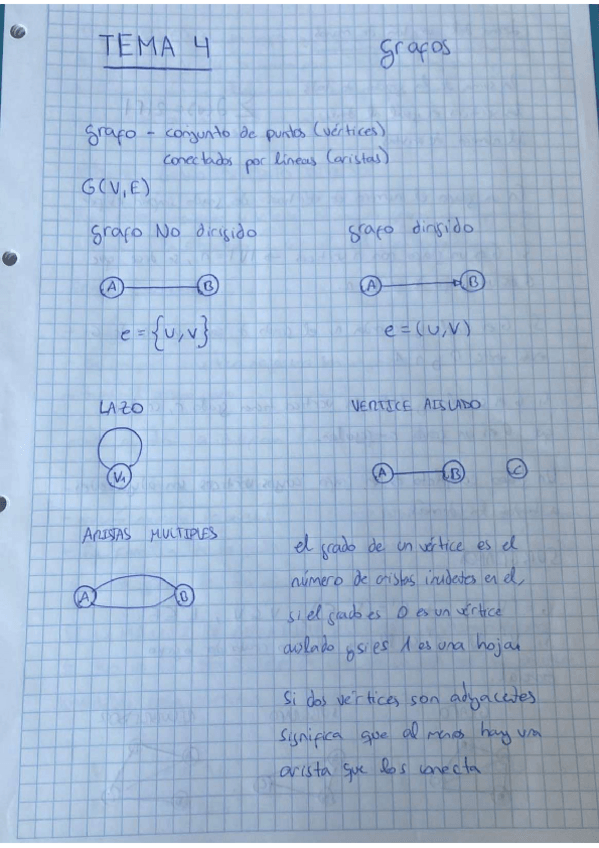 TEMA 4
Grafos
grafo - conjunto de puntos (vértices)
conectados por lineas (aristas)
G(V,E)
grafo No dirigido
grafo dirigido
A B
A B
e = {u,v}
e = (u,v)
LAZO
VERTICE AISLADO
V1
A B C
ARISTAS MULTIPLES
A B
el grado de un vértice es el
número de aristas incidetes en el,
si el grado es 0 es un vértice
aislado y si es 1 es una hoja.
Si dos vértices son adyacetes
significa que al menos hay una
arista que los conecta